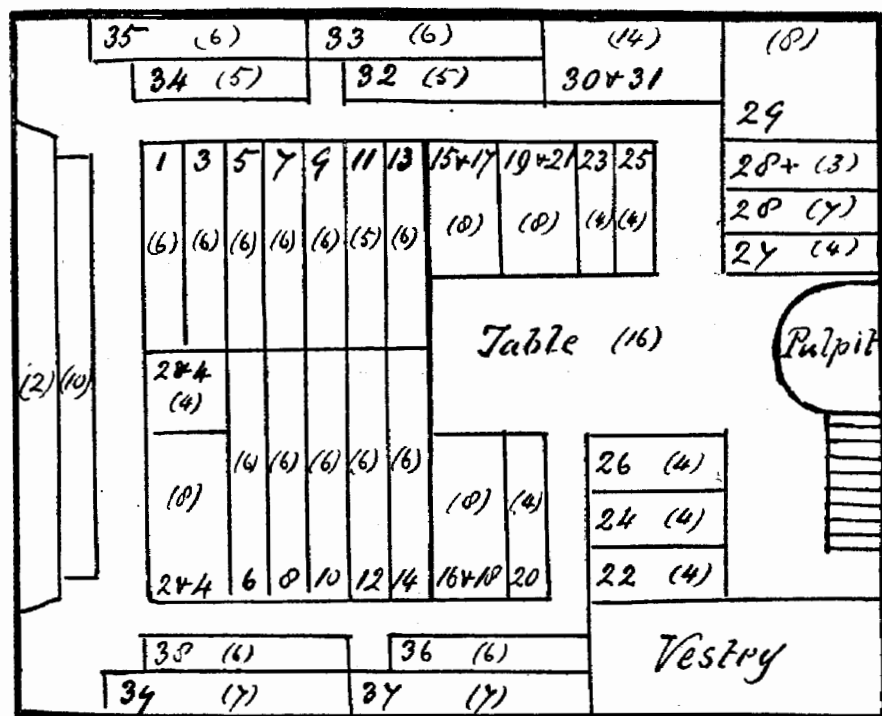 35 (6) 33 (6) (14) (8)
34 (5) 32 (5) 30+31
29
1 3 5 7 9 11 13 15+17 19+21 23 25 28+ (3)
28 (7)
(6) (6) (6) (6) (6) (5) (6) (8) (8) (4) (4) 27 (4)
Table (16) Pulpit
(12) (10) 2+4
(4)
(6) (6) (6) (6) (6) 26 (4)
(8) (8) (4) 24 (4)
2+4 6 8 10 12 14 16+18 20 22 (4)
38 (6) 36 (6) Vestry
39 (7) 37 (7)